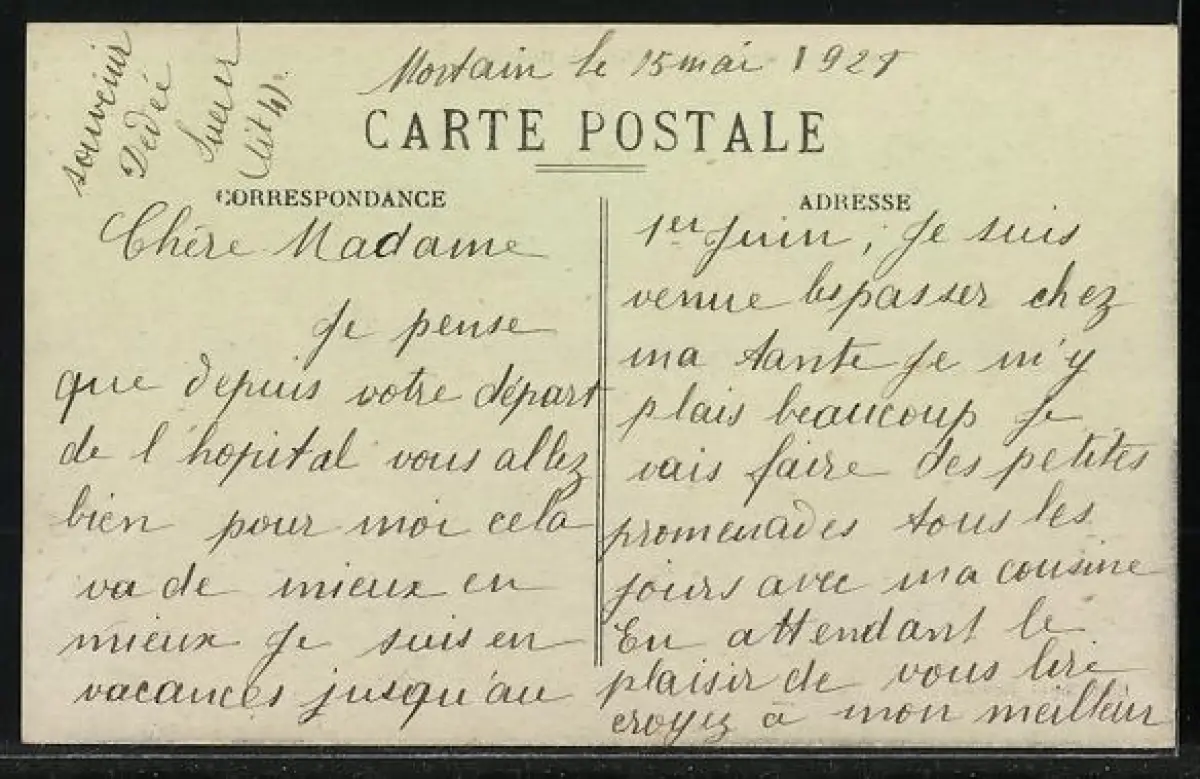 Mortain le 15 mai 1921
CARTE POSTALE
CORRESPONDANCE
Chère Madame
Je pense
que depuis votre départ
de l'hopital vous allez
bien pour moi cela
va de mieux en
mieux Je suis en
vacances jusqu'au
ADRESSE
1er Juin, Je suis
venue les passer chez
ma tante Je m'y
plais beaucoup Je
vais faire des petites
promenades tous les
jours avec ma cousine
En attendant le
plaisir de vous lire
croyez à mon meilleur
souvenir
Dédée
(lit 4).